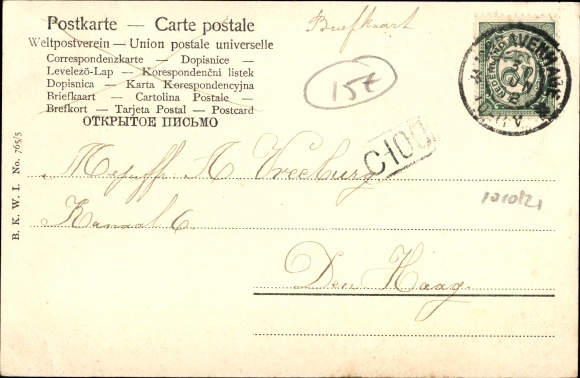 Postkarte — Carte postale
Weltpostverein — Union postale universelle
Correspondenzkarte — Dopisnice —
Levelező-Lap — Korespondenční listek
Dopisnica — Karta Korespondencyjna
Briefkaart — Cartolina Postale —
Brefkort — Tarjeta Postal — Postcard
ОТКРЫТОЕ ПИСЬМО
Briefkaart
15z
'S-GRAVENHAGE
NEDERLAND
C-100
B. K. W. I. No. 765/5
Mejuffr A Vreeburg
Kanaal 6.
Den Haag.